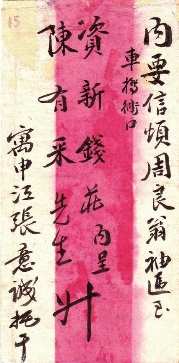 内要信煩周良翁袖遞至
車橋衖口
資新錢莊內呈
陳有釆先生升
寓申江張意誠托十
15